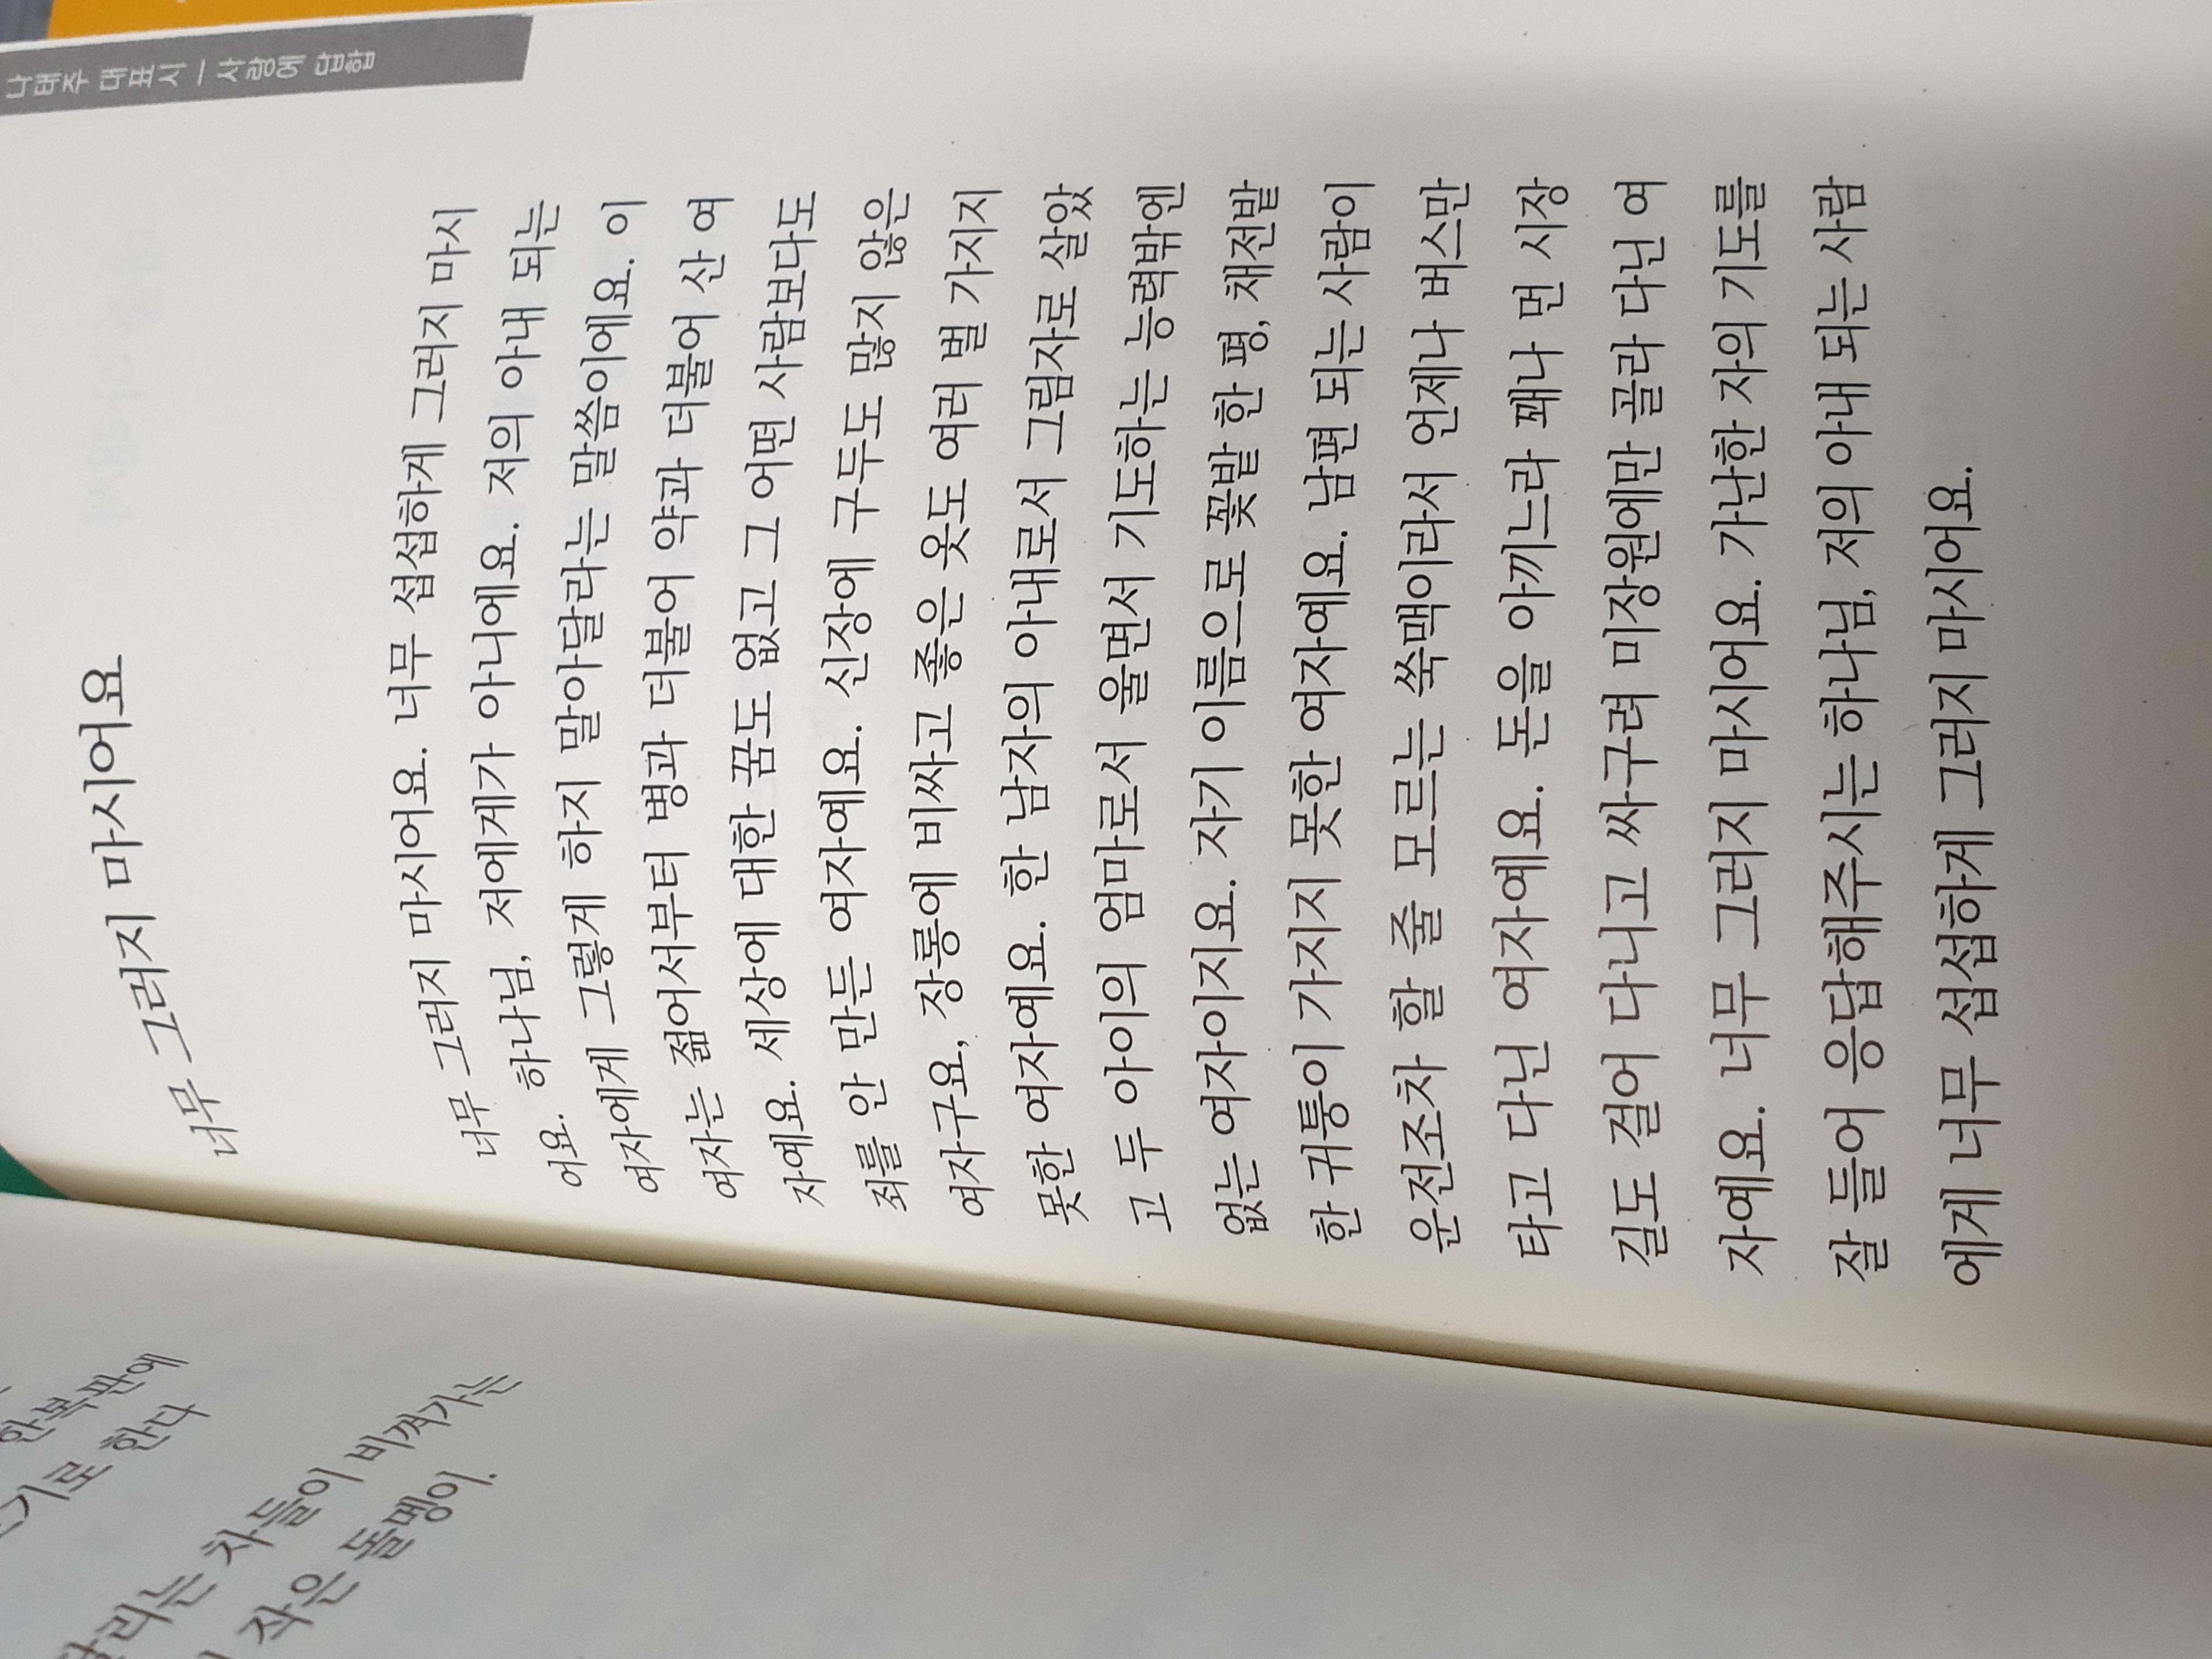 한복판에
기로 한다
달리는 차들이 비껴가는
작은 돌멩이.
나태주 대표시 — 사랑에 답함
너무 그러지 마시어요
너무 그러지 마시어요. 너무 섭섭하게 그러지 마시
어요. 하나님, 저에게가 아니에요. 저의 아내 되는
여자에게 그렇게 하지 말아달라는 말씀이에요. 이
여자는 젊어서부터 병과 더불어 약과 더불어 산 여
자예요. 세상에 대한 꿈도 없고 그 어떤 사람보다도
죄를 안 만든 여자예요. 신장에 구두도 많지 않은
여자구요, 장롱에 비싸고 좋은 옷도 여러 벌 가지지
못한 여자예요. 한 남자의 아내로서 그림자로 살았
고 두 아이의 엄마로서 울면서 기도하는 능력밖엔
없는 여자이지요. 자기 이름으로 꽃밭 한 평, 채전밭
한 귀퉁이 가지지 못한 여자예요. 남편 되는 사람이
운전조차 할 줄 모르는 쑥맥이라서 언제나 버스만
타고 다닌 여자예요. 돈을 아끼느라 꽤나 먼 시장
길도 걸어 다니고 싸구려 미장원에만 골라 다닌 여
자예요. 너무 그러지 마시어요. 가난한 자의 기도를
잘 들어 응답해주시는 하나님, 저의 아내 되는 사람
에게 너무 섭섭하게 그러지 마시어요.